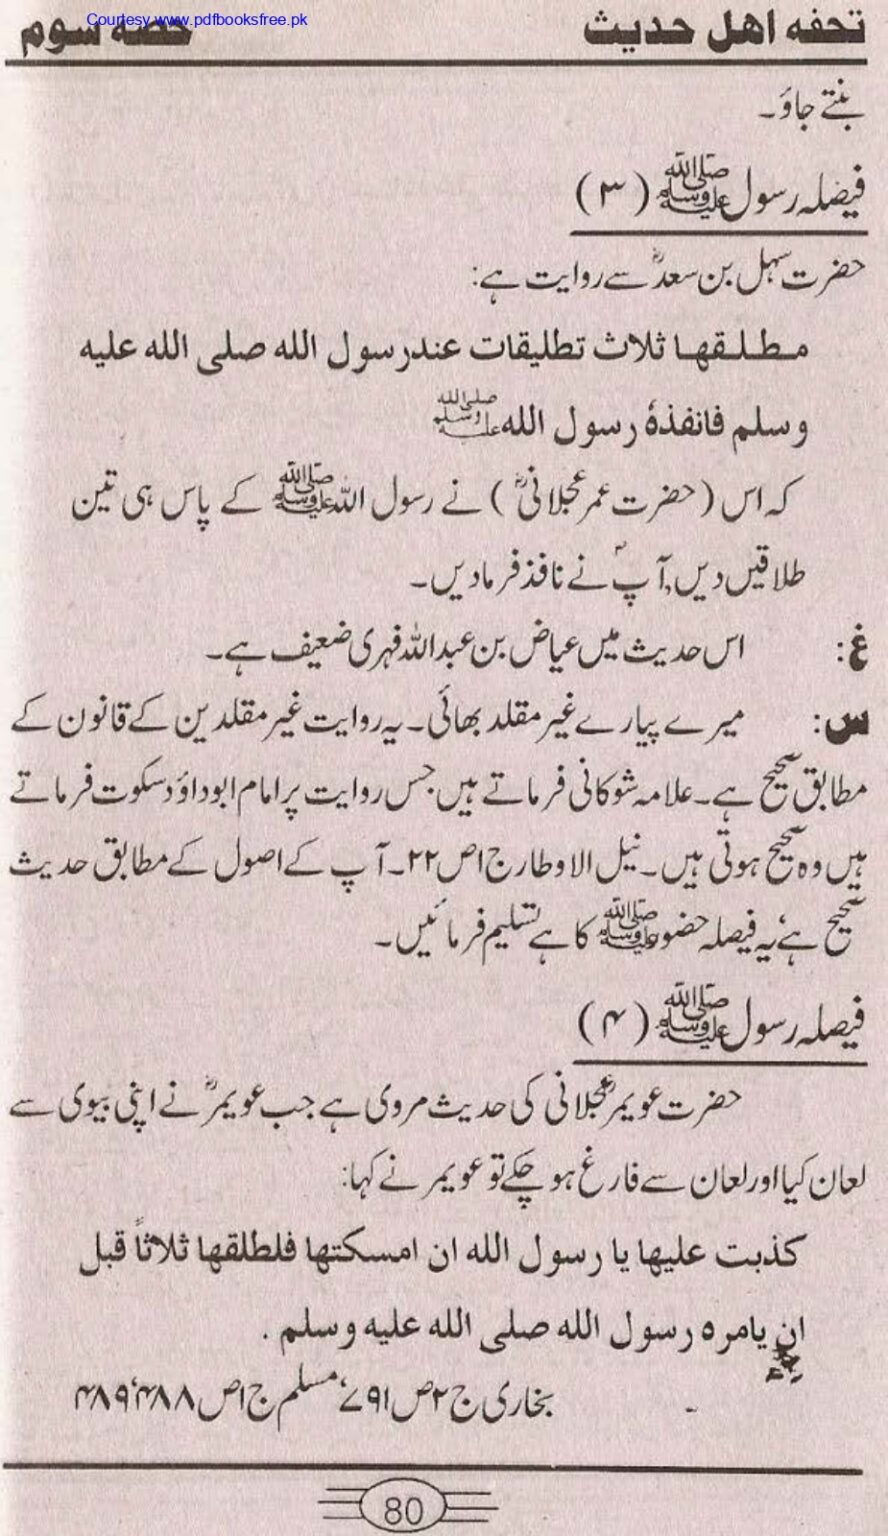 Courtesy www.pdfbooksfree.pk
تحفه اهل حدیث حصه سوم
بنتے جاؤ۔
فیصلہ رسول ﷺ (۳)
حضرت سہل بن سعدؓ سے روایت ہے:
مطلقها ثلاث تطليقات عندرسول الله صلى الله عليه
وسلم فانفذهٗ رسول الله ﷺ
کہ اس (حضرت عمر عجلانیؓ) نے رسول اللہ ﷺ کے پاس ہی تین
طلاقیں دیں، آپؐ نے نافذ فرمادیں۔
غ: اس حدیث میں عیاض بن عبداللہ فہری ضعیف ہے۔
س: میرے پیارے غیر مقلد بھائی۔ یہ روایت غیر مقلدین کے قانون کے
مطابق صحیح ہے۔ علامہ شوکانی فرماتے ہیں جس روایت پر امام ابوداؤد سکوت فرماتے
ہیں وہ صحیح ہوتی ہیں۔ نیل الاوطار ج۱ ص۲۲۔ آپ کے اصول کے مطابق حدیث
صحیح ہے یہ فیصلہ حضور ﷺ کا ہے تسلیم فرمائیں۔
فیصلہ رسول ﷺ (۴)
حضرت عویمرؓ عجلانی کی حدیث مروی ہے جب عویمرؓ نے اپنی بیوی سے
لعان کیا اور لعان سے فارغ ہو چکے تو عویمر نے کہا:
كذبت عليها يا رسول الله ان امسكتها فلطلقها ثلاثاً قبل
ان يامره رسول الله صلى الله عليه وسلم .
بخاری ج۲ ص۷۹۱، مسلم ج۱ ص۴۸۸، ۴۸۹
80